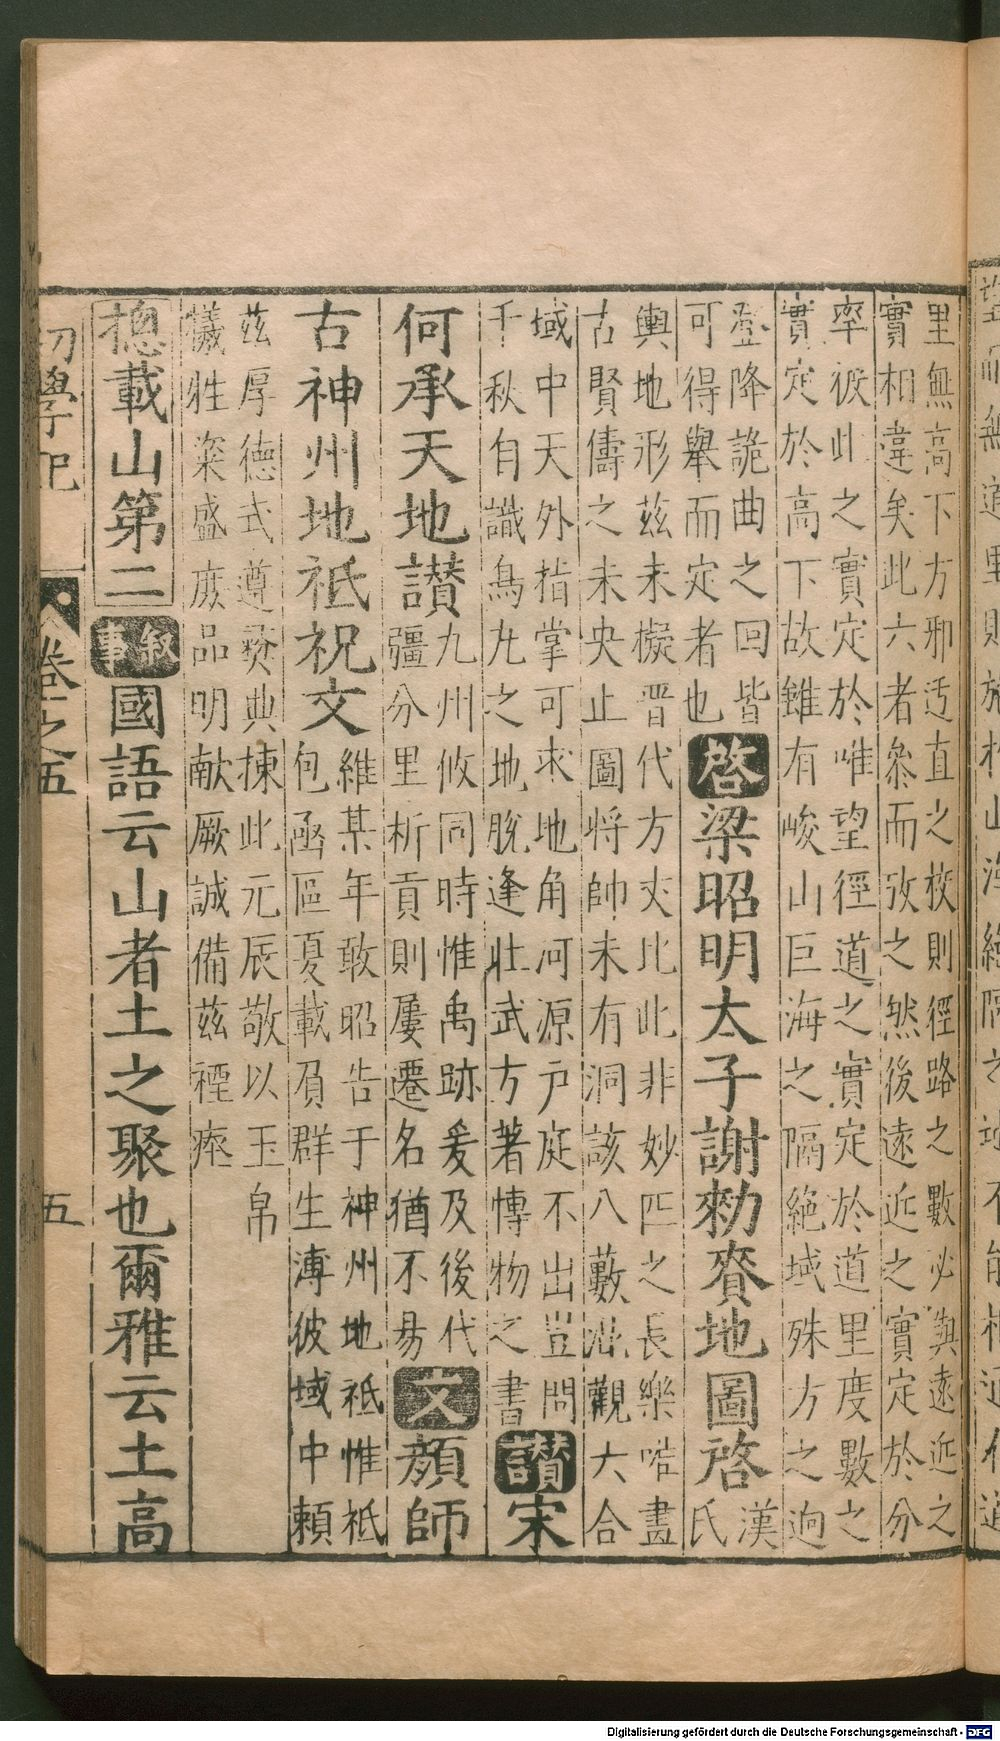 里無高下方邪迃直之校則徑路之數必與遠近之
實相違矣此六者叅而攷之然後遠近之實定於分
率彼此之實定於唯望徑道之實定於道里度數之
實定於高下故雖有峻山巨海之隔絶域殊方之逈
登降詭曲之回皆
可得舉而定者也
啓梁昭明太子謝勑賚地圖啓
漢
氏
輿地形兹未擬晋代方丈比此非妙匹之長樂唯畫
古賢儔之未央止圖將帥未有洞該八藪混觀六合
域中天外指掌可求地角河源户庭不出豈問
千秋自識烏丸之地脫逢壯武方著愽物之書
讃宋
何承天地讃
九州攸同時惟禹跡爰及後代
彊分里析貢則屢遷名猶不昜
文顔師
古神州地祇祝文
維某年敢昭告于神州地祇惟祇
包函區夏載育群生溥彼域中頼
兹厚德式遵彛典揀此元辰敬以玉帛
犧牲粢盛庻品明献厥誠備兹禋瘞
揔載山第二叙事國語云山者土之聚也爾雅云土高
初學記 卷之五 五
Digitalisierung gefördert durch die Deutsche Forschungsgemeinschaft - DFG